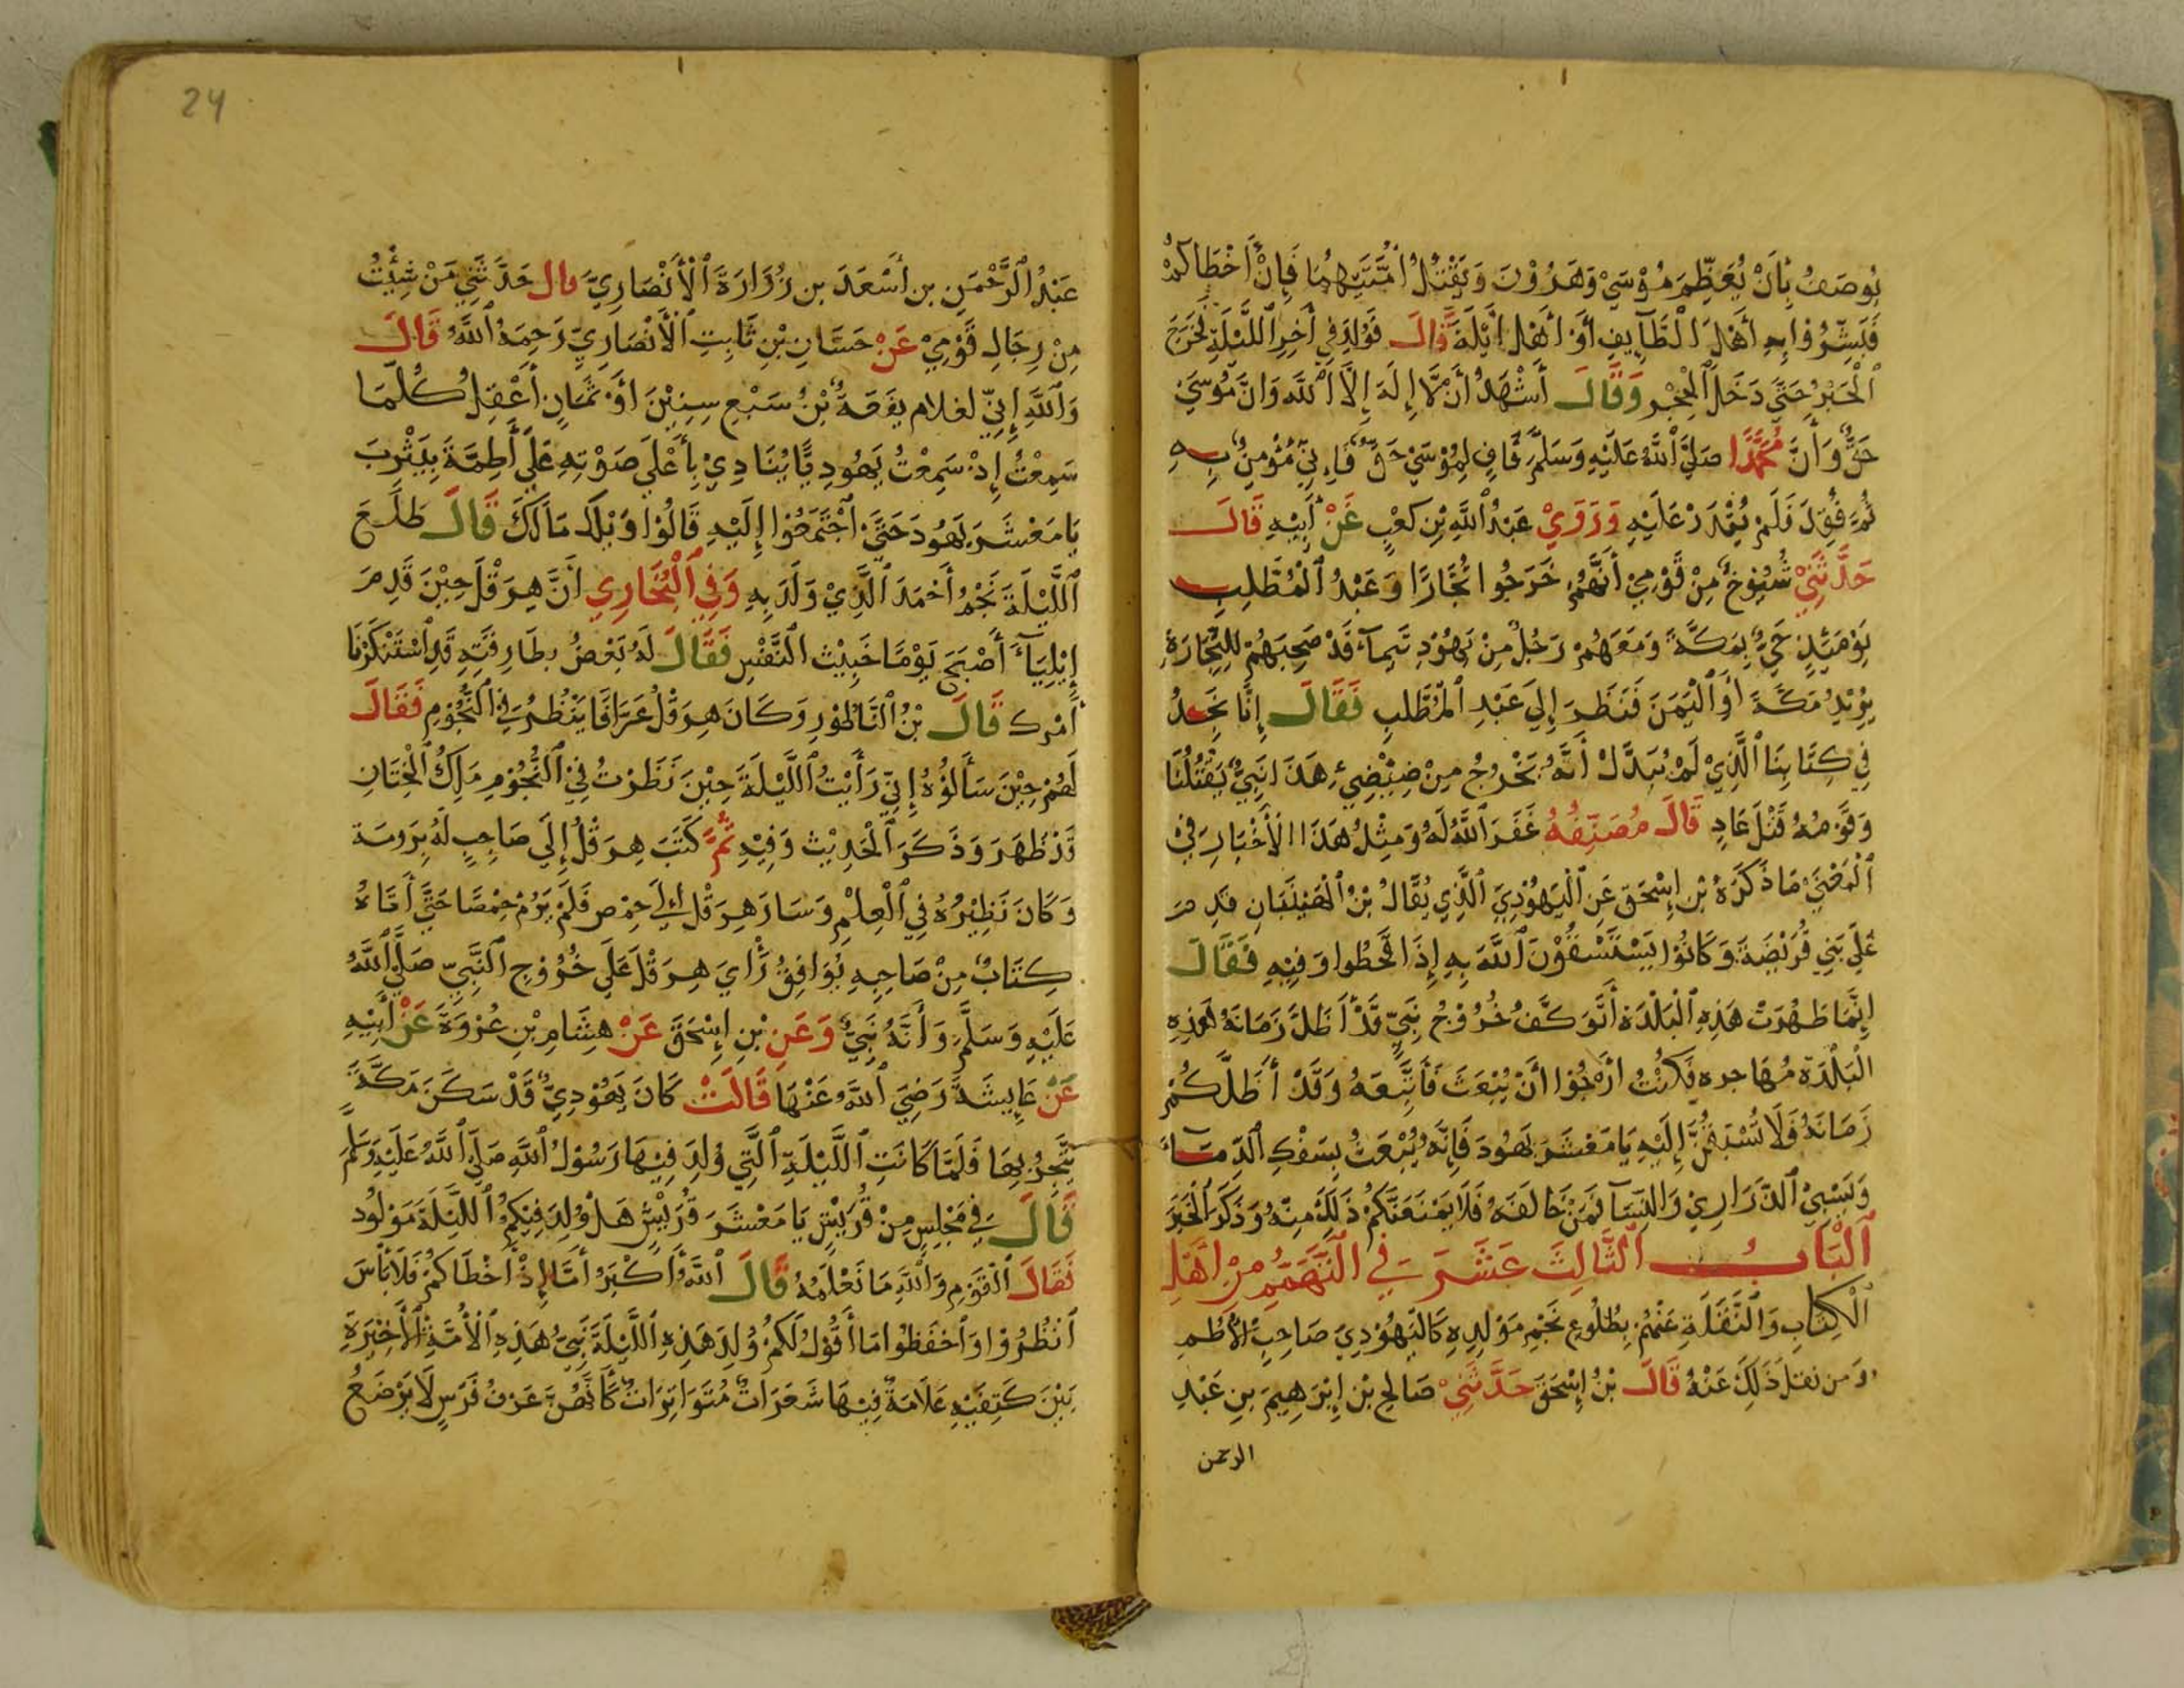 يُوصَفُ بِأَنْ يُعَظِّمَ مُوْسَيْ وَهَرُوْنَ وَيَقْتُلُ أُمَّتَيْهِمَا فَإِنْ أَخْطَاكُمْ
فَبَشِّرُوْا بِهِ أَهْلَ الْطَّآيِفِ أَوْ أَهْلَ أَيْلَةَ قَالَ فَوُلِدَ فِي أَخِرِ اللَّيْلَةِ فَخَرَجَ
الْحَبْرُ حَتَّي دَخَلَ الْحِجْرِ وَقَالَ أَشْهَدُ أَنْ لَّا إِلَهَ إِلَّا اللَّهَ وَانَّ مُوْسَيْ
حَقٌّ وَأَنَّ مُحَمَّدًا صَلَيَّ اللَّهُ عَلَيْهِ وَسَلَّمَ قَافٍ لِمُوْسَيْ حَقٌّ فَاِنِّيْ مُؤْمِنٌ بِهِ
ثُمَّ فُقِدَ فَلَمْ يُقْدَرْ عَلَيْهِ وَرَوَيْ عَبْدُ اللَّهِ بْنِ كَعْبٍ عَنْ أَبِيْهِ قَالَ
حَدَّثَنِيْ شُيُوْخٌ مِنْ قَوْمِيْ أَنَّهُمْ خَرَجُوا تُجَّارًا وَعَبْدُ الْمُطَّلِبِ
يَوْمَيِٕذٍ حَيٌّ بِمَكَّةَ وَمَعَهُمْ رَجُلٌ مِنْ يَهُوْدِ تَيْمَآءَ قَدْ صَحِبَهُمْ لِلتِّجَارَةِ
يُرِيْدُ مَكَّةَ أَوِ الْيَمَنَ فَنَظَرَ إِلَي عَبْدِ الْمُطَّلِبِ فَقَالَ إِنَّا نَجِدُ
فِي كِتَابِنَا الَّذِيْ لَمْ يُبَدَّلْ أَنَّهُ يَخْرُجُ مِنْ ضِيْضِيْءِ هَذَا نَبِيٌّ يَقْتُلُنَا
وَقَوْمُهُ قَتْلَ عَادٍ قَالَ مُصَنِّفُهُ غَفَرَ اللَّهُ لَهُ وَمِثْلُ هَذَا الْأَخْبَارِ فِيْ
الْمَعْنَيْ مَا ذَكَرَهُ بْنِ إِسْحَقَ عَنِ الْيَهُوْدِيَ الَّذِي يُقَالُ بْنُ الْهَيْبَانِ قَدِمَ
عَلَيَ بَنِي قُرَيْضَةَ وَكَانُوْا يَسْتَسْقُوْنَ اللَّهَ بِهِ إِذَا قَحَطُوا وَفِيْهِ فَقَالَ
إِنَّمَا ظَهَرَتْ هَذِهِ الْبَلْدَةَ أَتَوَكَّفُ خُرُوْجُ نَبِيٍّ قَدْ أَظَلَّ زَمَانَهُ هَذِهِ
الْبَلْدَةُ مُهَاجره فَكُنْتُ أَرْجُوْا أَنْ يُبْعَثَ فَأَتَّبِعَهُ وَقَدْ أَظَلَّكُمْ
زَمَانَهُ فَلَا تُسْبَقُنَّ إِلَيْهِ يَا مَعْشَرَ يَهُودَ فَإِنَّهُ يُبْعَثُ بِسَفْكِ الدِّمَآءِ
وَبِسَبْيِ الذَّرَارِيْ وَالنِّسَآ مَنْ خَالَفَهُ فَلَا يَمْنَعَنَّكُمْ ذَلِكَ مِنْهُ وَذَكَرَ الْخَبَرَ
الْبَابُ الثَّالِثَ عَشَرَ فِي النَّهَمِ مِنْ اَهْلِ
الْكِتَابِ وَالنَّقَلَةِ عَنْهُمْ بِطُلُوْعِ نَجْمِ مَوْلِدِهِ كَالْيَهُوْدِيَ صَاحِبِ الْأُطُمِ
وَمَن نقل ذَلِكَ عَنْهُ قَالَ بْنُ إِسْحَقَ حَدَّثَنِيْ صَالِحِ بْنِ إِبْرَهِيْمَ بِنِ عَبْدِ
الرحمن
24
عَبْدُ الْرَّحْمَنِ بن أَسْعَدَ بن زُرَارَةَ الْأَنْصَارِيَّ قال حَدَّثَنِي مَنْ شِئْتُ
مِنْ رِجَالِ قَوْمِيْ عَنْ حَسَّانِ بْنِ ثَابِتِ الْأَنْصَارِيَّ رَحِمَهُ اللَّهُ قَالَ
وَاللَّهِ إِنِّيْ لغلام يَفَعَةٌ بْنُ سَبْعِ سِنِيْنَ أَوْ ثَمَانٍ أَعْقِلُ كُلَّمَا
سَمِعْتُ إِذْ سَمِعْتُ يَهُودِيًّا يُنَادِيْ بِأَعْلَي صَوْتِهِ عَلَي أَطِمَّةَ بِيَثْرِبَ
يَا مَعْشَرَ يَهُودَ حَتَّيْ اجْتَمَعُوْا إِلَيْهِ قَالُوْا وَيْلَكَ مَا لَكَ قَالَ طَلَعَ
اللَّيْلَةَ نَجْمُ أَحْمَدَ الَّذِيْ وَلَدَ بِهِ وَفِي الْبُخَارِي أَنَّ هِرَقْلَ حِيْنَ قَدِمَ
إِيْلِيَآءَ أَصْبَحَ يَوْمًا خَبِيْثَ النَّفْسِ فَقَالَ لَهُ بَعْضُ بِطَارِقَتِهِ قَدِ اسْتَنْكَرْنَا
أَمْرك قَالَ بْنُ النَّاطُوْرِ وَكَانَ هِرَقْلُ عَرَّافًا يَنْظُرُ فِي النُّجُوْمِ فَقَالَ
لَهُمْ حِيْنَ سَأَلُوْهُ إِنِّيْ رَأَيْتُ اللَّيْلَةَ حِيْنَ نَظَرْتُ فِيْ النُّجُوْمِ مَلِكُ الْخِتَانِ
قَدْ ظَهَرَ وَذَكَرَ الْحَدِيْثَ وَفِيْهِ ثُمَّ كَتَبَ هِرَقْلُ إِلَي صَاحِبٍ لَهُ بِرَومَة
وَكَانَ نَظِيْرُهُ فِي الْعِلْمِ وَسَارَ هِرَقْلِ إِلَي حِمْص فَلَمْ يَرُمْ حِمْصًا حَتَّي أَتَاهُ
كِتَابٌ مِنْ صَاحِبِهِ يُوَافِقُ رَأْيَ هِرَقْلَ عَلَي خُرُوْجِ النَّبِيِّ صَلَيَّ اللَّهُ
عَلَيْهِ وَسَلَّمَ وَأَنَّهُ نَبِيٌّ وَعَنِ بْنِ إِسْحَقَ عَنْ هِشَامِ بْنِ عُرْوَةَ عَنْ أَبِيْهِ
عَنْ عَايِشَةَ رَضِيَ اللَّهُ عَنْهَا قَالَتْ كَانَ يَهُوْدِيٌّ قَدْ سَكَنَ مَكَّةَ
يَتَّجِرُ بِهَا فَلَمَّا كَانَتِ اللَّيْلَةِ الَّتِي وُلِدَ فِيْهَا رَسُوْلُ اللَّهِ صَلَي اللَّهُ عَلَيْهِ وَسَلَّمَ
قَالَ فِي مَجْلِسِ مِنْ قُرَيْشٍ يَا مَعْشَرَ قُرَيْشٍ هَلْ وُلِدَ فِيْكُمُ اللَّيْلَةَ مَوْلُود
فَقَالَ الْقَوْمِ وَاللَّهِ مَا نَعْلَمُهُ قَالَ اللَّهُ أَكْبَرُ أَمَّا إِذْ أَخْطَاكُمْ فَلَا بَأْسَ
انْظُرُوْا وَاحْفَظُوْا مَا أَقُوْلُ لَكُمْ وُلِدَ هَذِهِ اللَّيْلَةَ نَبِيُّ هَذِهِ الْأُمَّةِ الْأَخِيْرَةِ
بَيْنَ كَتِفَيْهِ عَلَامَةٌ فِيْهَا شَعَرَاتٌ مُتَوَاتِرَاتٌ كَأَنَّهُنَّ عَرْفُ فَرَسٍ لَا يَرْضَعُ